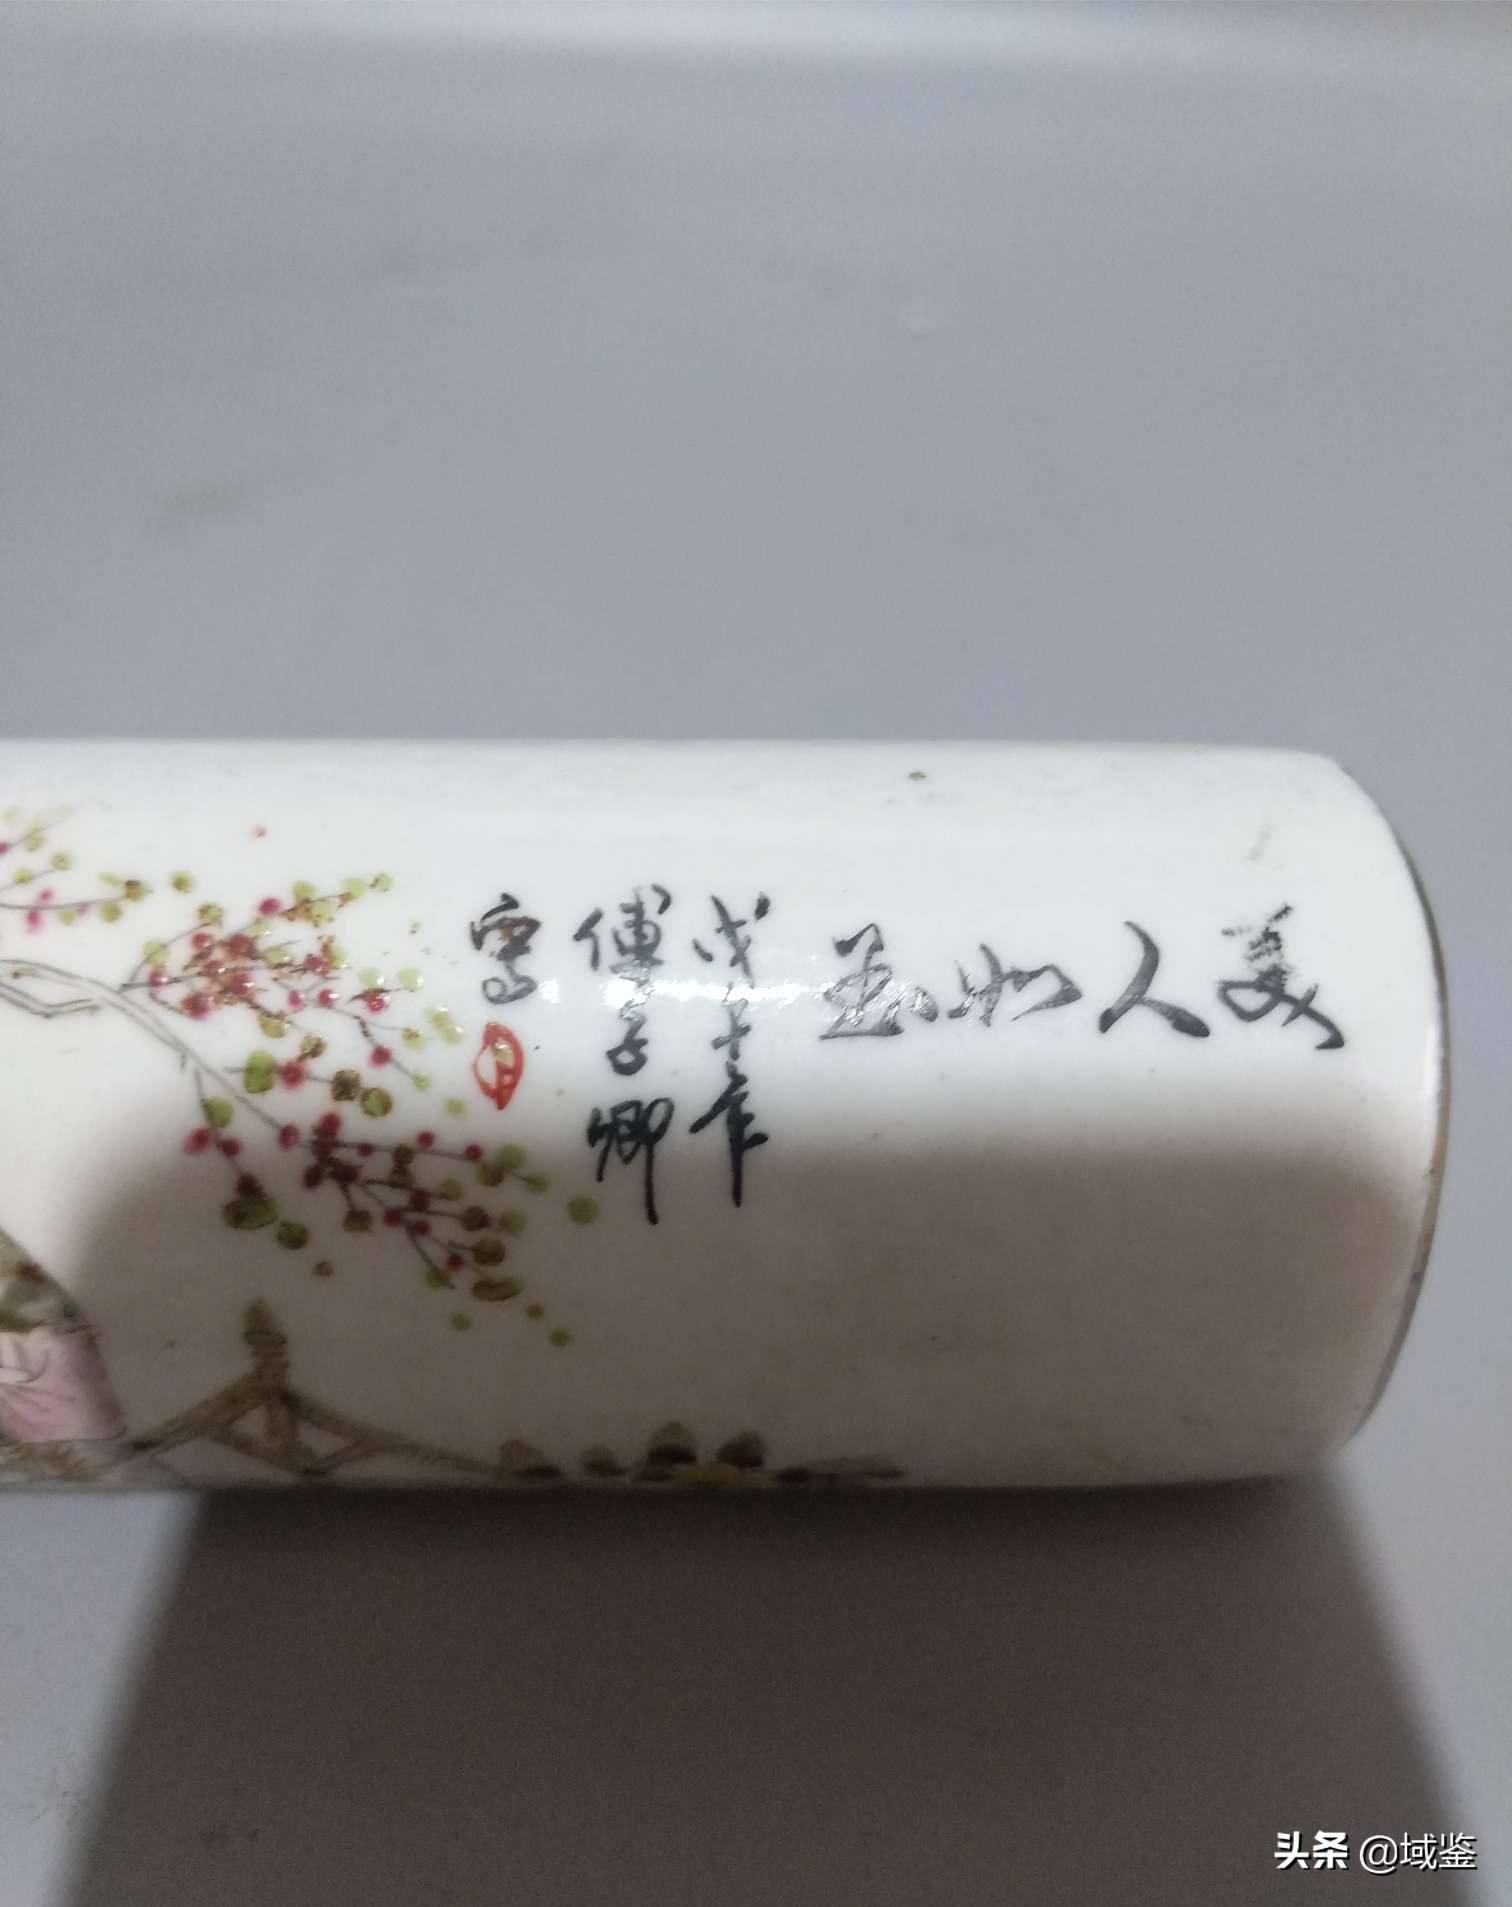 美人如玉
戊午年
傅子卿
寫
头条 @域鉴